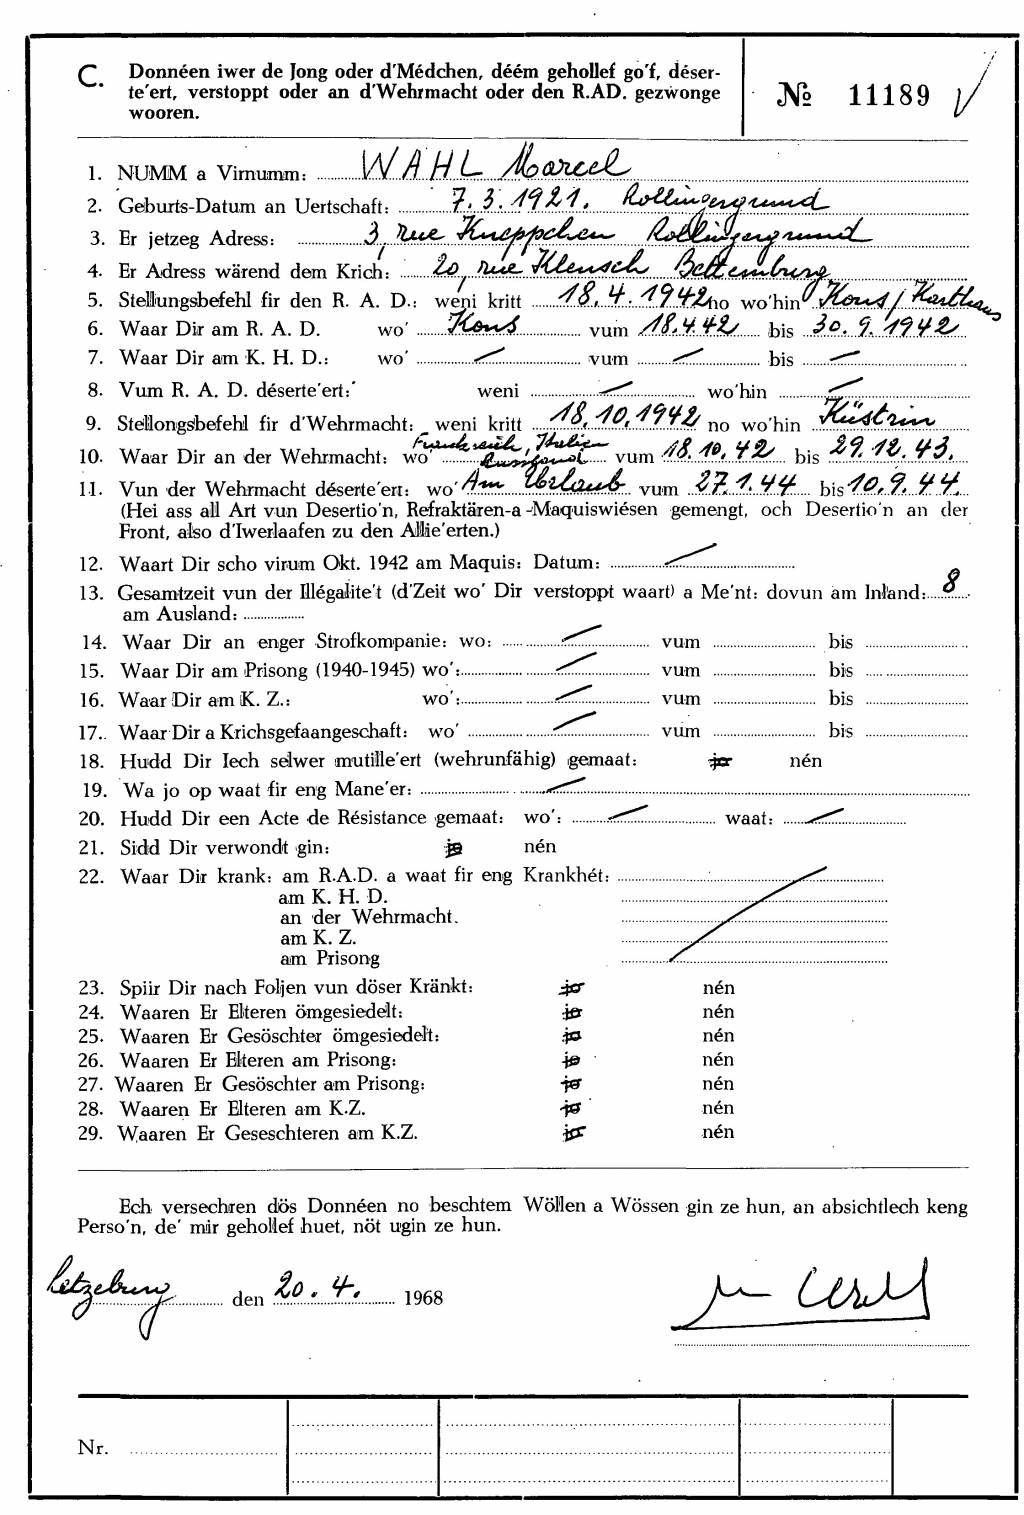 C. Donnéen iwer de Jong oder d'Médchen, déém gehollef go'f, déser-
te'ert, verstoppt oder an d'Wehrmacht oder den R.AD. gezwonge
wooren.
№ 11189 V
1. NUMM a Virnumm: WAHL Marcel
2. Geburts-Datum an Uertschaft: 7.3.1921. Rollingergrund
3. Er jetzeg Adress: 3, rue Kneppchen Rollingergrund
4. Er Adress wärend dem Krich: 20, rue Klensch Bettemburg
5. Stellungsbefehl fir den R. A. D.: weni kritt 18.4.1942 no wo'hin Kons/Karthaus
6. Waar Dir am R. A. D. wo' Kons vum 18.4.42 bis 30.9.1942
7. Waar Dir am K. H. D.: wo' / vum / bis /
8. Vum R. A. D. déserte'ert: weni / wo'hin /
9. Stellongsbefehl fir d'Wehrmacht: weni kritt 18.10.1942 no wo'hin Küstrin
Frankreich, Italien
10. Waar Dir an der Wehrmacht: wo' Russland vum 18.10.42 bis 29.12.43.
11. Vun der Wehrmacht déserte'ert: wo' Am Urlaub vum 27.1.44 bis 10.9.44.
(Hei ass all Art vun Desertio'n, Refraktären-a-Maquiswiésen gemengt, och Desertio'n an der
Front, also d'Iwerlaafen zu den Allie'erten.)
12. Waart Dir scho virum Okt. 1942 am Maquis: Datum: /
13. Gesamtzeit vun der Illégalite't (d'Zeit wo' Dir verstoppt waart) a Me'nt: dovun am Inland: 8
am Ausland:
14. Waar Dir an enger Strofkompanie: wo: / vum bis
15. Waar Dir am Prisong (1940-1945) wo': / vum bis
16. Waar Dir am K. Z.: wo': / vum bis
17. Waar Dir a Krichsgefaangeschaft: wo' / vum bis
18. Hudd Dir Iech selwer mutille'ert (wehrunfähig) gemaat: ja nén
19. Wa jo op waat fir eng Mane'er: /
20. Hudd Dir een Acte de Résistance gemaat: wo': / waat: /
21. Sidd Dir verwondt gin: jo nén
22. Waar Dir krank: am R.A.D. a waat fir eng Krankhét:
am K. H. D.
an der Wehrmacht.
am K. Z.
am Prisong
23. Spiir Dir nach Foljen vun döser Kränkt: jo nén
24. Waaren Er Elteren ömgesiedelt: jo nén
25. Waaren Er Gesöschter ömgesiedelt: jo nén
26. Waaren Er Elteren am Prisong: jo nén
27. Waaren Er Gesöschter am Prisong: jo nén
28. Waaren Er Elteren am K.Z. jo nén
29. Waaren Er Geseschteren am K.Z. jo nén
Ech versechren dös Donnéen no beschtem Wöllen a Wössen gin ze hun, an absichtlech keng
Perso'n, de' mir gehollef huet, nöt ugin ze hun.
Letzeburg den 20.4. 1968
Nr.